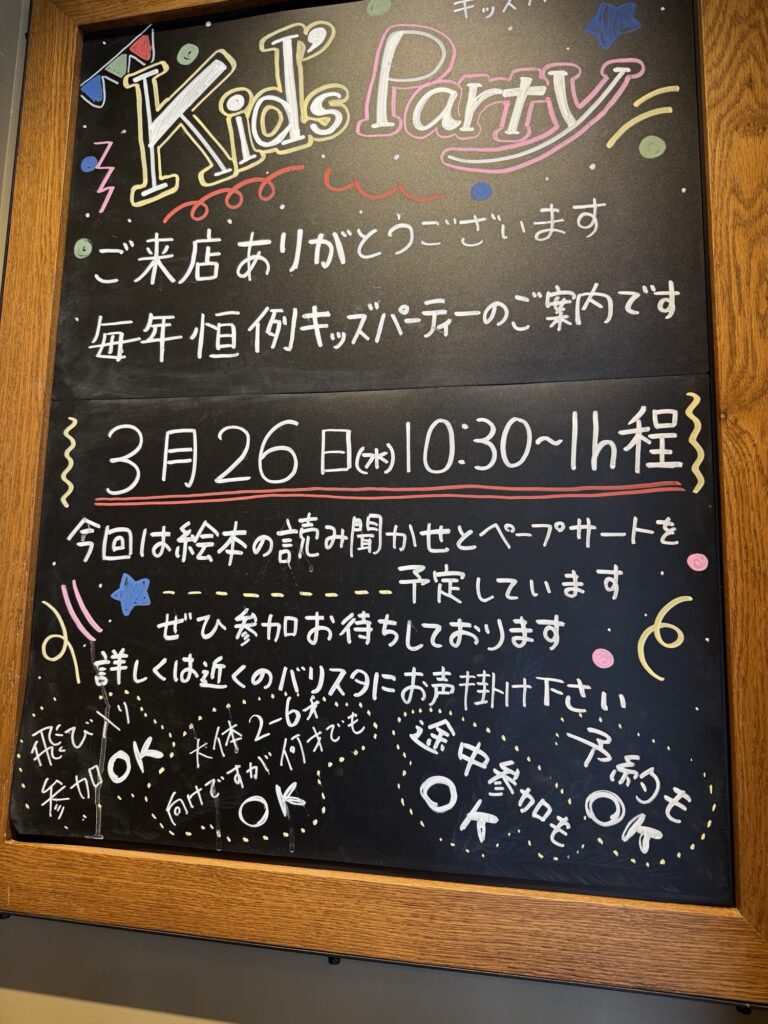 キッズパ
Kid's Party
ご来店ありがとうございます
毎年恒例キッズパーティーのご案内です
3月26日(水)10:30~1h程
今回は絵本の読み聞かせとペープサートを
予定しています
ぜひ参加お待ちしております
詳しくは近くのバリスタにお声掛け下さい
飛び入り
参加OK
大体2-6才
向けですが何才でも
OK
途中参加も
OK
予約も
OK